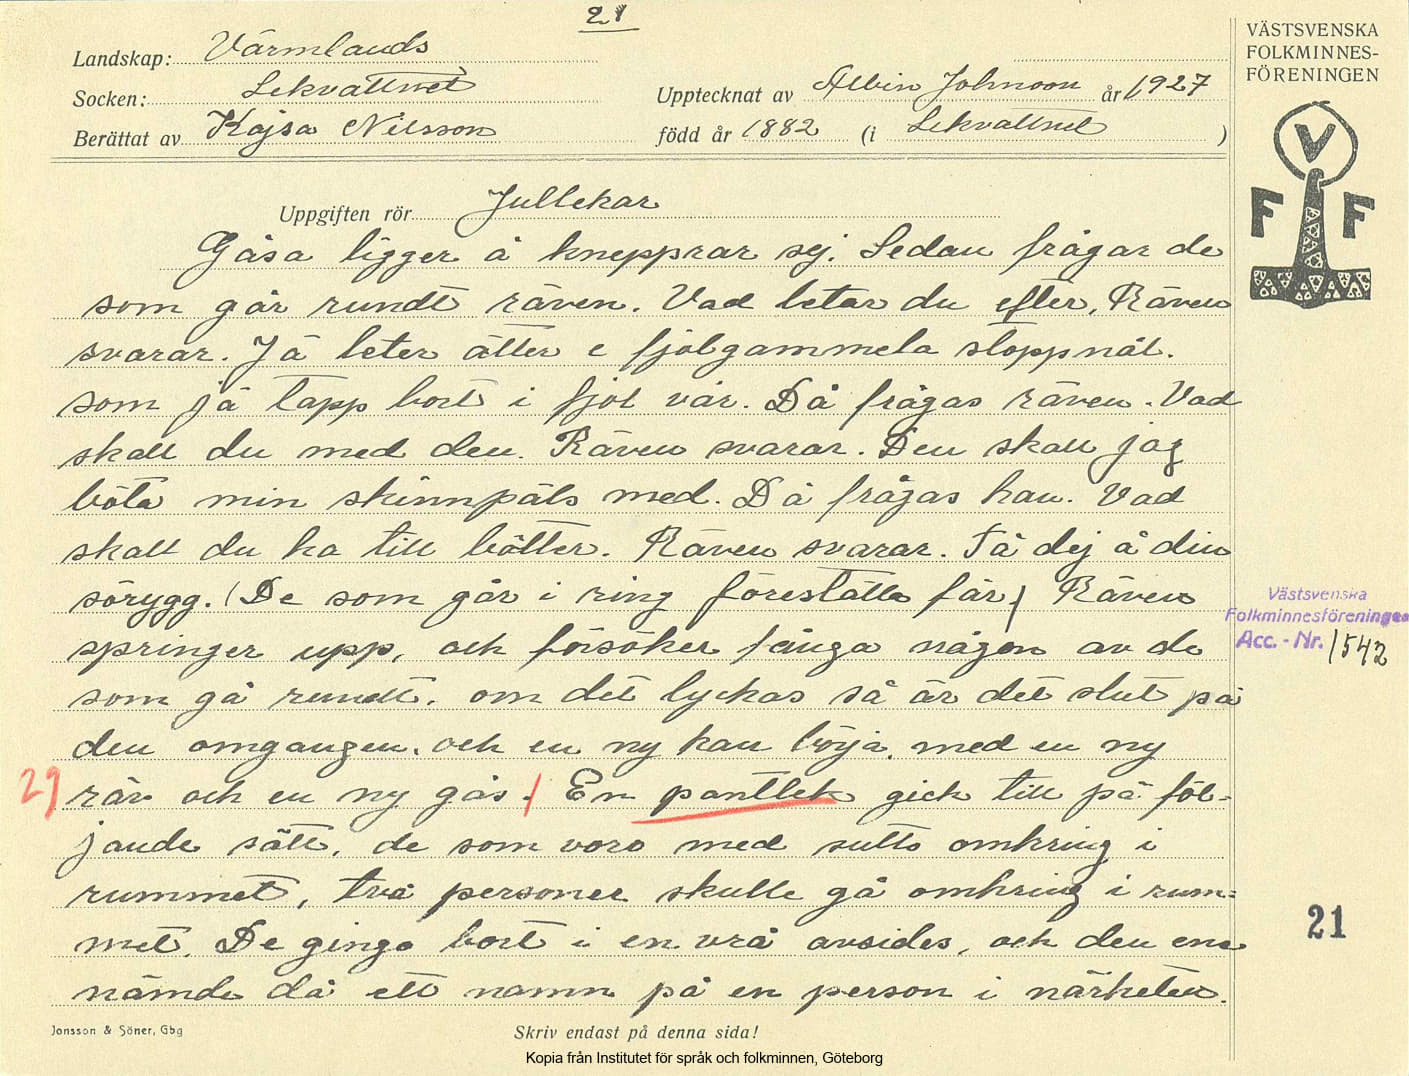 21
VÄSTSVENSKA
FOLKMINNES-
FÖRENINGEN
Landskap: Värmlands
Socken: Lekvattnet
Upptecknat av Albin Johnson år 1927
Berättat av Kajsa Nilsson född år 1882 (i Lekvattnet )
V
F F
Uppgiften rör Jullekar
Gåsa ligger å knepprar sej. Sedan frågar de
som går rundt räven. Vad letar du efter, Räven
svarar. Jä leter ätter e fjolgammela stoppnål.
som jä tapp bort i fjol vår. Då frågas räven. Vad
skall du med den. Räven svarar. Den skall jag
böta min skinnpäls med. Då frågas han. Vad
skall du ha till bötter. Räven svarar. Tå dej å din
sörygg. (De som går i ring föreställa får) Räven
springer upp, och försöker fånga någon av de
som gå rundt. om det lyckas så är det slut på
den omgangen. och en ny kan börja. med en ny
29 räv och en ny gås. / En pantlek gick till på föl-
jande sätt. de som voro med sutto omkring i
rummet, två personer skulle gå omkring i rum=
met. De gingo bort i en vrå avsides, och den ena
nämde då ett namn på en person i närheten.
Västsvenska
Folkminnesföreningen
Acc.-Nr. 1542
21
Jonsson & Söner, Gbg
Skriv endast på denna sida!
Kopia från Institutet för språk och folkminnen, Göteborg